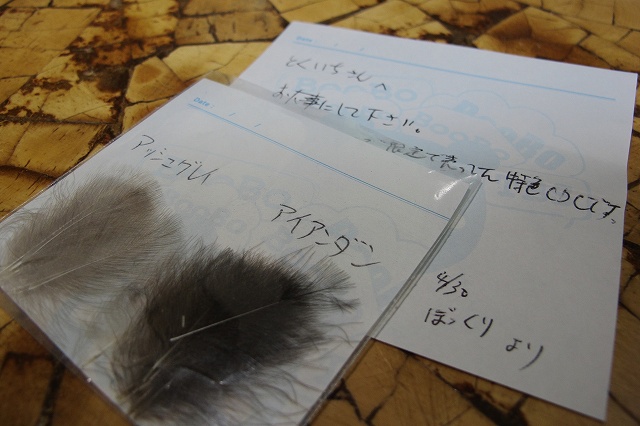 Date
とくいちさんへ
お大事にして下さい。
限定で売ってた 特色CDCです。
4/30
ぼっくり より
Date
アッシュグレイ
アイアンダン